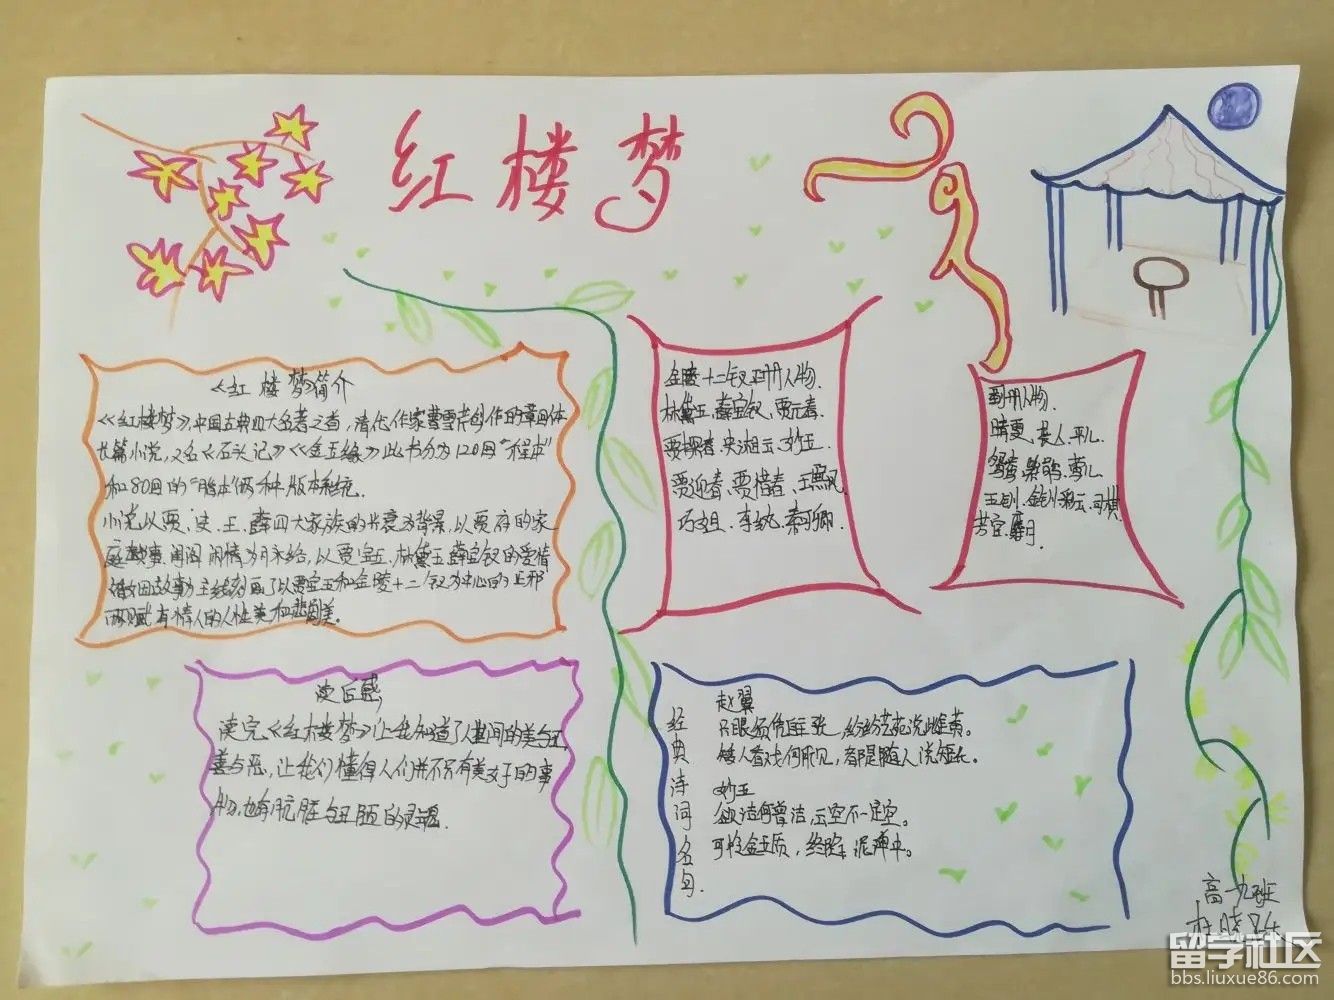 红楼梦
《红楼梦》简介
《红楼梦》,中国古典四大名著之首,清代作家曹雪芹创作的章回体
长篇小说,又名《石头记》《金玉缘》此书分为120回"程本"
和80回的"脂本"两种版本系统。
小说以贾、史、王、薛四大家族的兴衰为背景,以贾府的家
庭琐事、闺阁闲情为脉络,以贾宝玉、林黛玉、薛宝钗的爱情
故事》主线刻画了以贾宝玉和金陵十二钗为中心的正邪
两赋有情人的人性美和悲剧美。
金陵十二钗正册人物.
林黛玉、薛宝钗、贾元春.
贾探春、史湘云、妙玉.
贾迎春、贾惜春、王熙凤.
巧姐、李纨、秦可卿.
副册人物.
晴雯、袭人、平儿.
鸳鸯、紫鹃、莺儿.
玉钏、金钏、彩云、司棋.
芳官、麝月.
读后感
读完《红楼梦》让我知道了人世间的美与丑,
善与恶,让我们懂得人们并不只有美好的事
物,也有肮脏与丑陋的灵魂.
经典诗词名句.
赵翼
只眼须凭自主张,纷纷艺苑说雌黄。
矮人看戏何所见,都是随人说短长。
妙玉
欲洁何曾洁,云空不一定空。
可怜金玉质,终陷泥淖中。
高一九班
留学社区
bbs.liuxue86.com